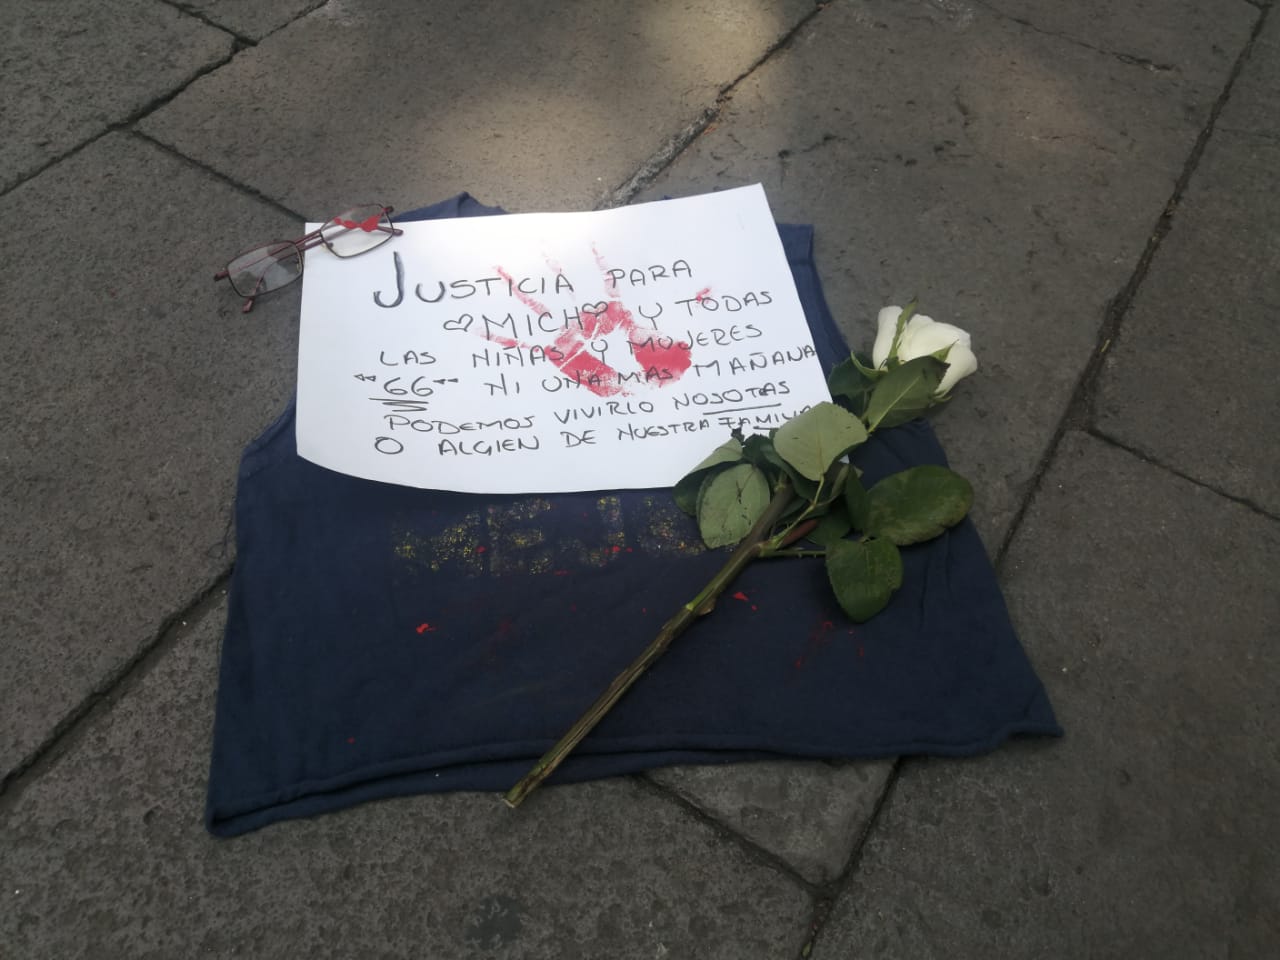 JUSTICIA PARA
♡MICH♡ Y TODAS
LAS NIÑAS Y MUJERES
"66" NI UNA MAS MAÑANA
PODEMOS VIVIRLO NOSOTAS
O ALGIEN DE NUESTRA FAMILIA